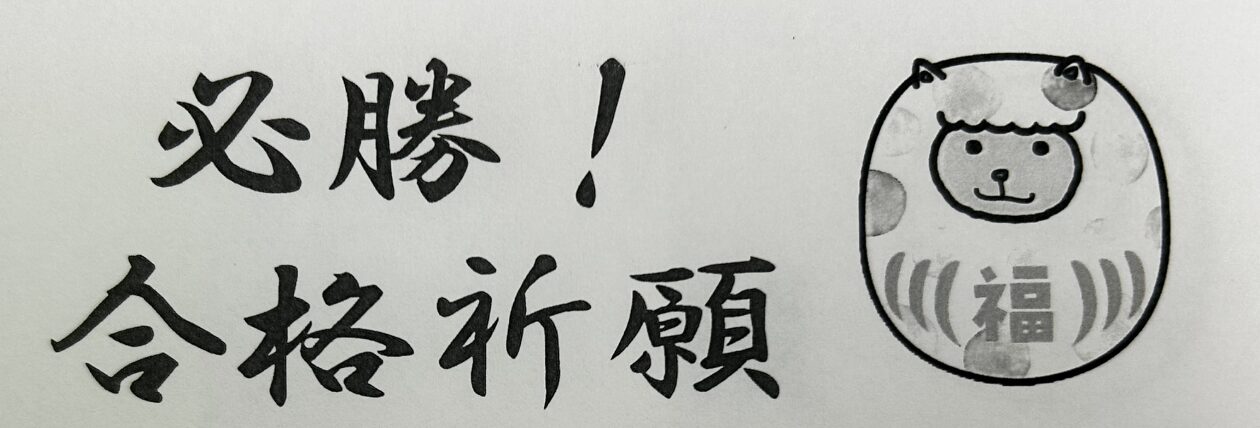 必勝！
合格祈願
福